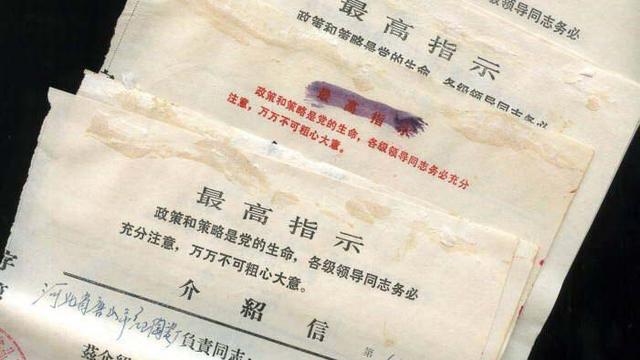 级领导同志务必
最高指示
政策和策略是党的生命，各级领导同志务必
最高指示
政策和策略是党的生命，各级领导同志务必充分
注意，万万不可粗心大意。
最高指示
政策和策略是党的生命，各级领导同志务必
充分注意，万万不可粗心大意。
介紹信
字 第
河北省唐山市 陶瓷厂負責同志
介紹